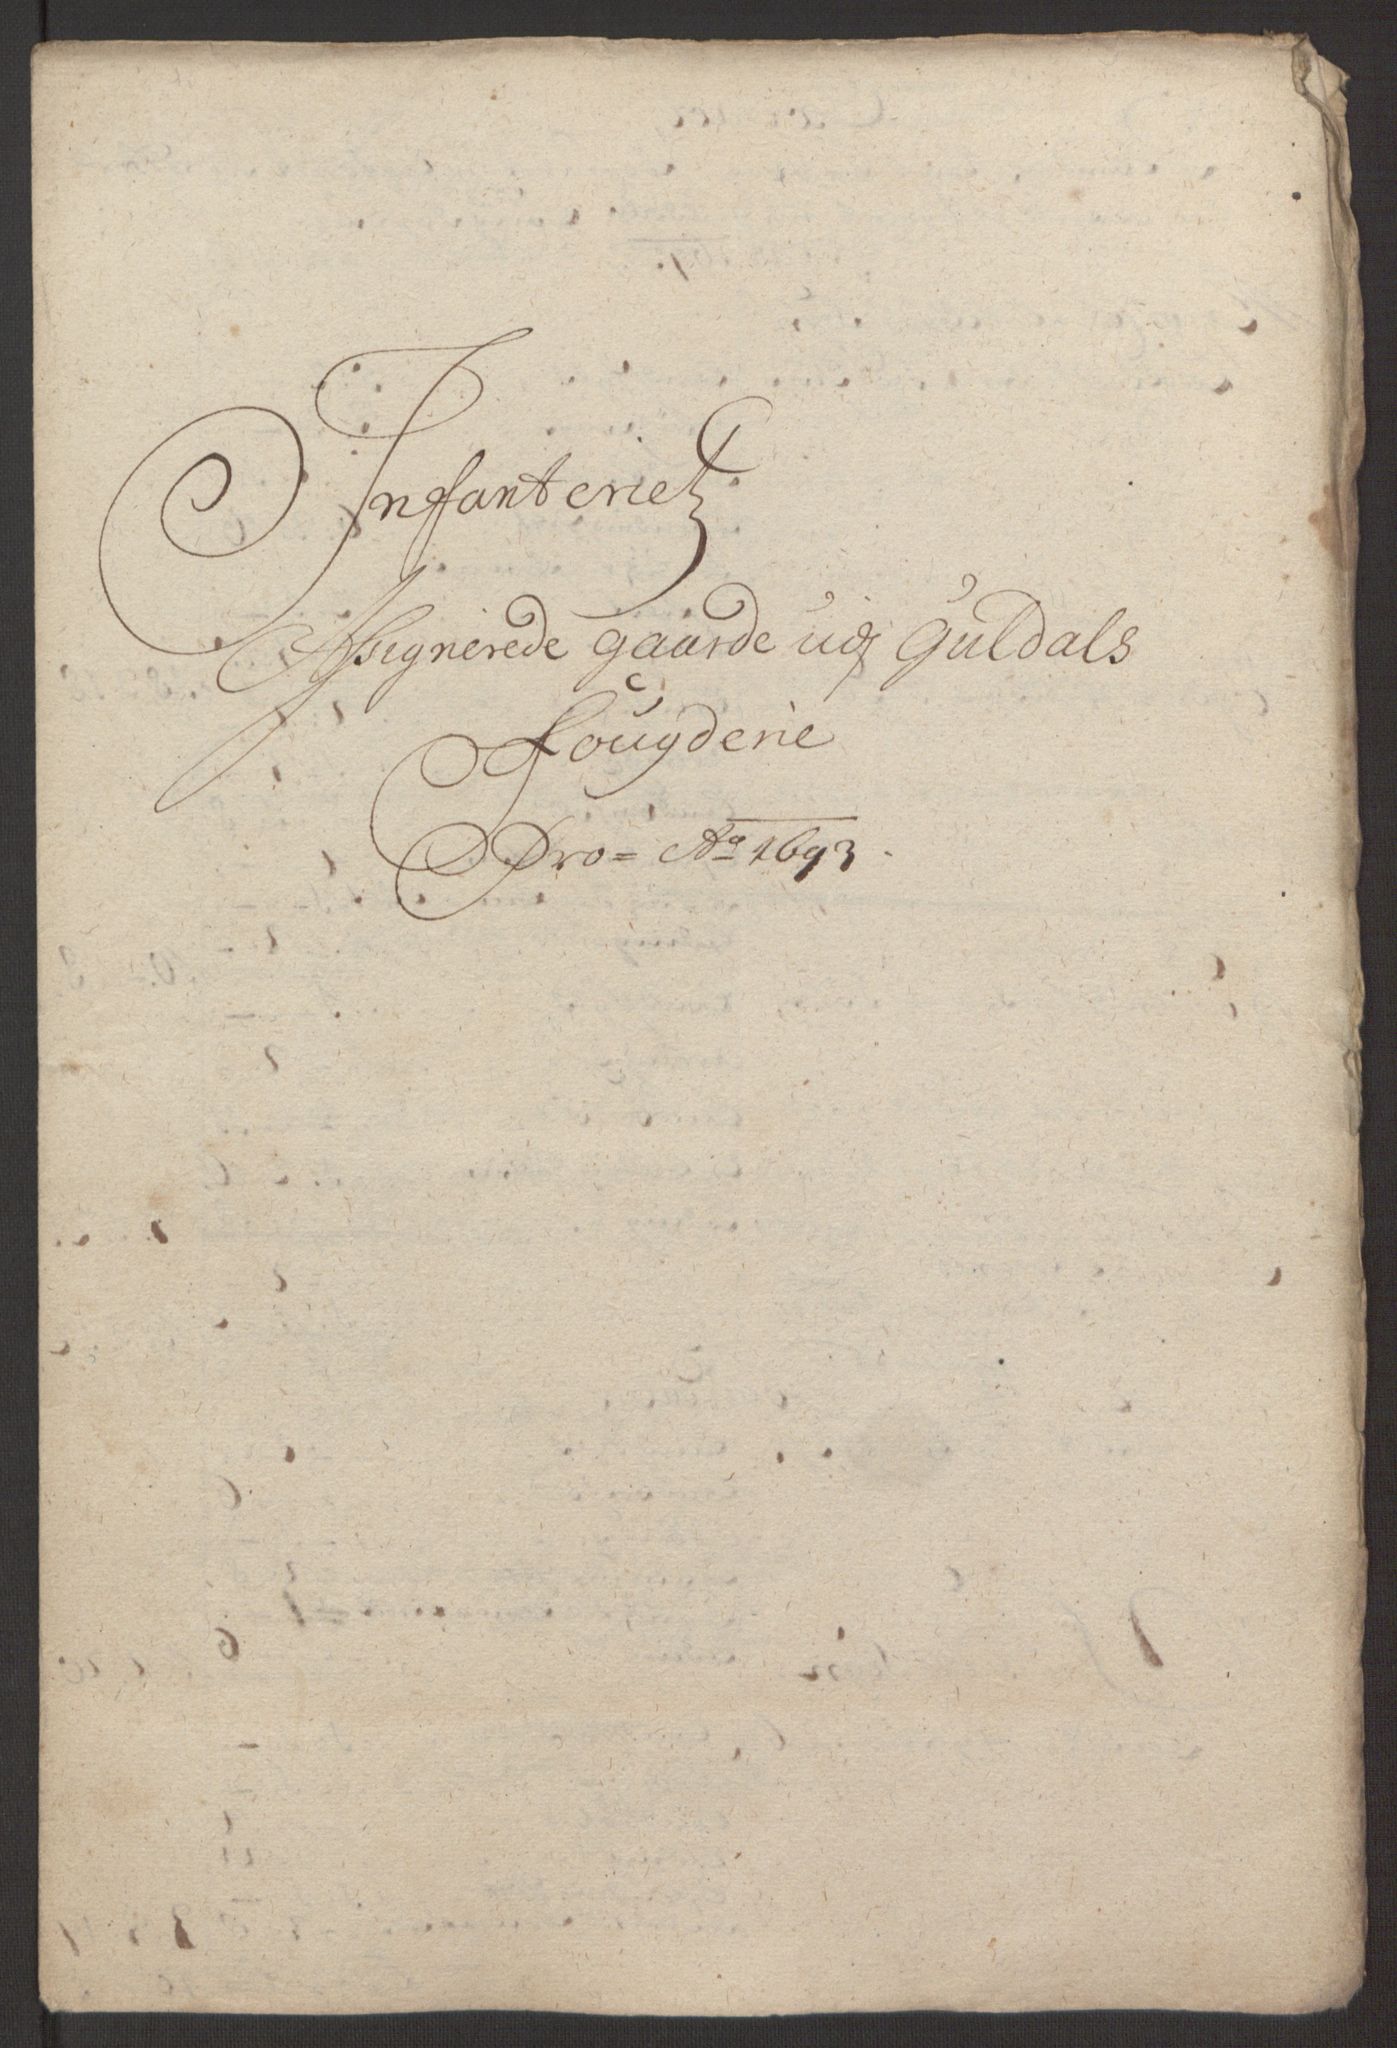 Infanteriets
Assignerede gaarde udj Guldals
Fougderie
Pro= Ao 1693.